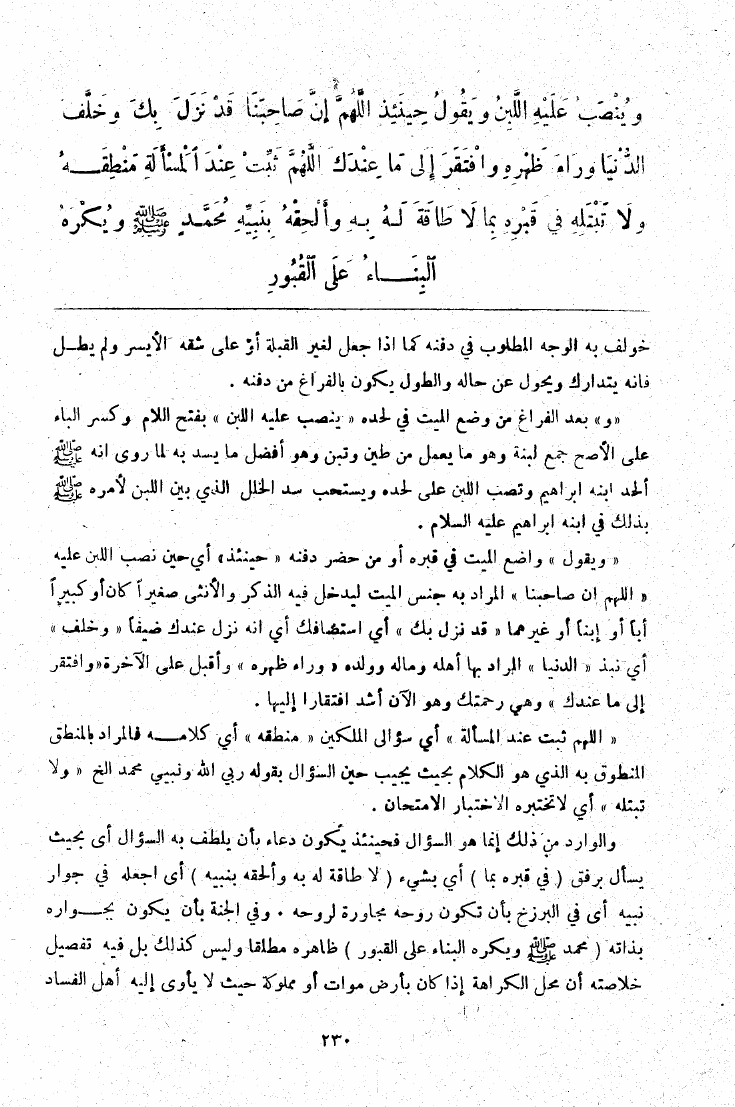 وَيُنْصَبُ عَلَيْهِ اللَّبِنُ وَيَقُولُ حِينَئِذ اللَّهُمَّ إِنَّ صَاحِبَنَا قَدْ نَزَلَ بِكَ وَخَلَّفَ
الدُّنْيَا وَرَاءَ ظَهْرِهِ وَافْتَقَرَ إِلَى مَا عِنْدَكَ اللَّهُمَّ ثَبِّتْ عِنْدَ الْمَسْأَلَةِ مَنْطِقَهُ
وَلَا تَبْتَلِهِ فِي قَبْرِهِ بِمَا لَا طَاقَةَ لَهُ بِهِ وَأَلْحِقْهُ بِنَبِيِّهِ مُحَمَّدٍ ﷺ وَيُكْرَهُ
الْبِنَاءُ عَلَى الْقُبُورِ
خولف به الوجه المطلوب في دفنه كما اذا جعل لغير القبلة أو على شقه الأيسر ولم يطل
فانه يتدارك ويحول عن حاله والطول يكون بالفراغ من دفنه .
«و» بعد الفراغ من وضع الميت في لحده « ينصب عليه اللبن » بفتح اللام وكسر الباء
على الأصح جمع لبنة وهو ما يعمل من طين وتبن وهو أفضل ما يسد به لما روى انه ﷺ
ألحد ابنه ابراهيم ونصب اللبن على لحده ويستحب سد الخلل الذي بين اللبن لأمره ﷺ
بذلك في ابنه ابراهيم عليه السلام .
« ويقول » واضع الميت في قبره أو من حضر دفنه « حينئذ» أي حين نصب اللبن عليه
« اللهم ان صاحبنا » المراد به جنس الميت ليدخل فيه الذكر والأنثى صغيراً كان أو كبيراً
أباً أو إبناً أو غيرهما « قد نزل بك » أي استضافك أي انه نزل عندك ضيفاً « وخلف »
أي نبذ « الدنيا » المراد بها أهله وماله وولده « وراء ظهره » وأقبل على الآخرة «وافتقر
إلى ما عندك » وهي رحمتك وهو الآن أشد افتقارا إليها .
« اللهم ثبت عند المسألة » أي سؤالى الملكين « منطقه » أي كلامه فالمراد بالمنطق
المنطوق به الذي هو الكلام بحيث يجيب حين السؤال بقوله ربي الله ونبيي محمد الخ « ولا
تبتله » أي لاتختبره الاختبار الامتحان .
والوارد من ذلك إنما هو السؤال فحينئذ يكون دعاء بأن يلطف به السؤال أى بحيث
يسأل برفق ( في قبره بما ) أي بشيء ( لا طاقة له به وألحقه بنبيه ) أى اجعله في جوار
نبيه أى في البرزخ بأن تكون روحه مجاورة لروحه . وفي الجنة بأن يكون بجواره
بذاته ( محمد ﷺ ويكره البناء على القبور ) ظاهره مطلقا وليس كذلك بل فيه تفصيل
خلاصته أن محل الكراهة إذا كان بأرض موات أو مملوكة حيث لا يأوى إليه أهل الفساد
٢٣٠